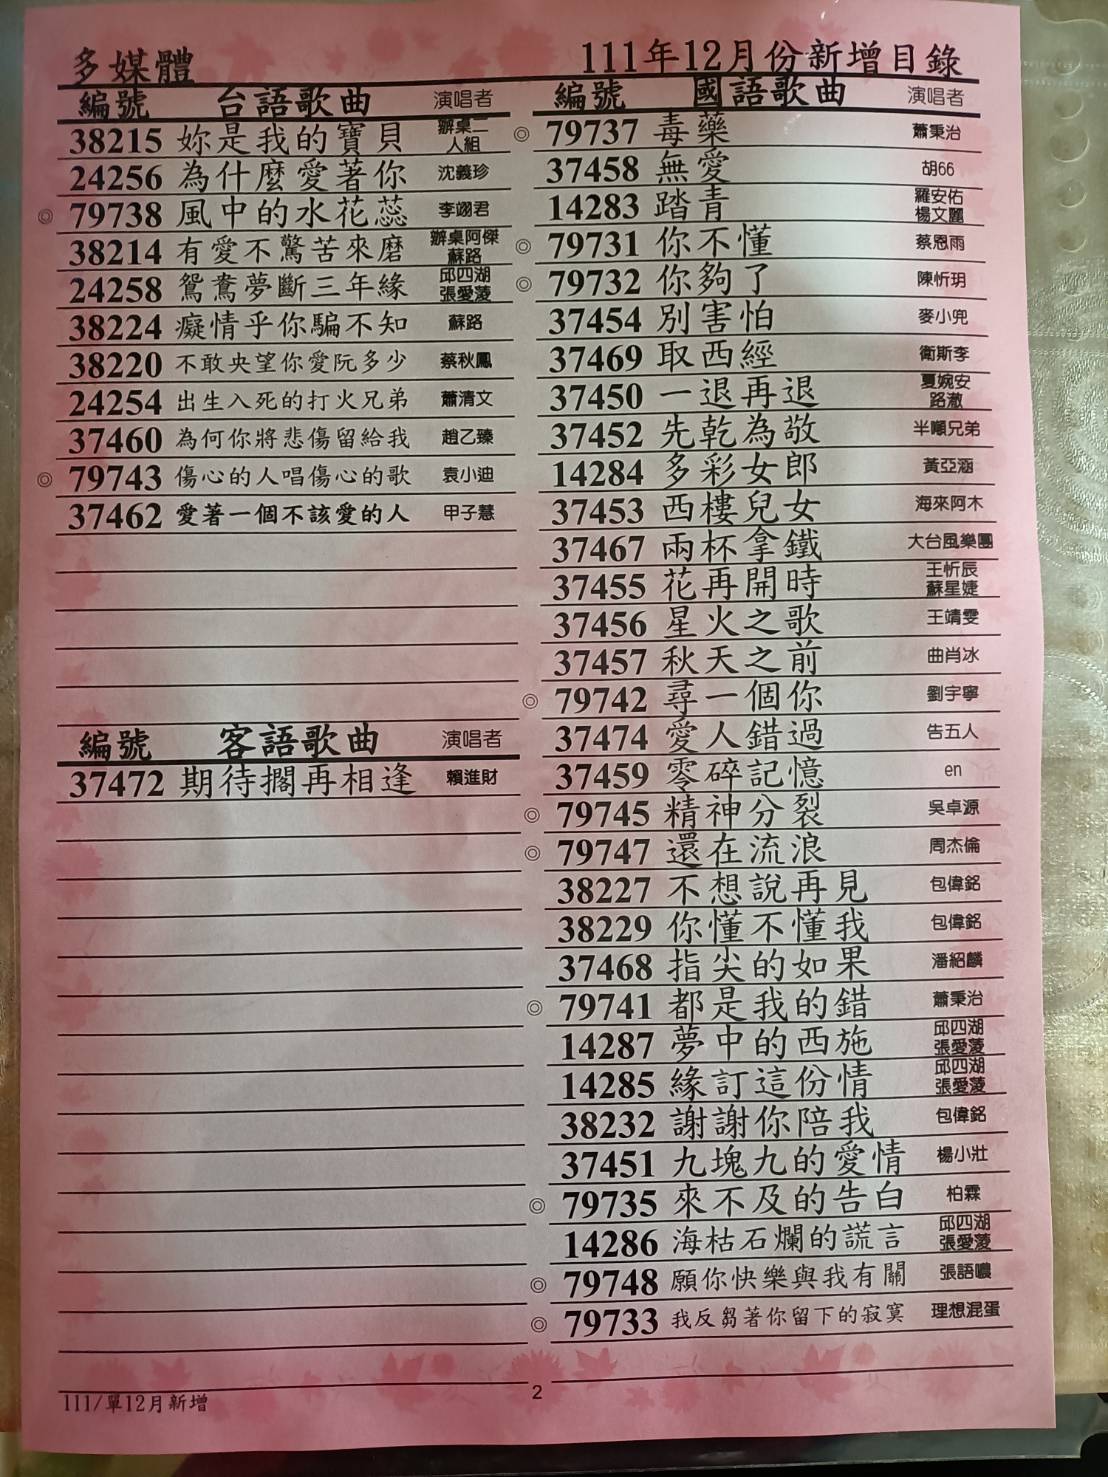 多媒體
111年12月份新增目錄
編號 台語歌曲 演唱者
38215 妳是我的寶貝 辦桌二人組
24256 為什麼愛著你 沈義珍
◎ 79738 風中的水花蕊 李翊君
38214 有愛不驚苦來磨 辦桌阿傑 蘇路
24258 鴛鴦夢斷三年緣 邱四湖 張愛菱
38224 癡情乎你騙不知 蘇路
38220 不敢央望你愛阮多少 蔡秋鳳
24254 出生入死的打火兄弟 蕭清文
37460 為何你將悲傷留給我 趙乙臻
◎ 79743 傷心的人唱傷心的歌 袁小迪
37462 愛著一個不該愛的人 甲子慧
編號 客語歌曲 演唱者
37472 期待擱再相逢 賴進財
編號 國語歌曲 演唱者
◎ 79737 毒藥 蕭秉治
37458 無愛 胡66
14283 踏青 羅安佑 楊文麗
◎ 79731 你不懂 蔡恩雨
◎ 79732 你夠了 陳忻玥
37454 別害怕 麥小兜
37469 取西經 衛斯李
37450 一退再退 夏婉安 路澈
37452 先乾為敬 半噸兄弟
14284 多彩女郎 黃亞涵
37453 西樓兒女 海來阿木
37467 兩杯拿鐵 大台風樂團
37455 花再開時 王忻辰 蘇星婕
37456 星火之歌 王靖雯
37457 秋天之前 曲肖冰
◎ 79742 尋一個你 劉宇寧
37474 愛人錯過 告五人
37459 零碎記憶 en
◎ 79745 精神分裂 吳卓源
◎ 79747 還在流浪 周杰倫
38227 不想說再見 包偉銘
38229 你懂不懂我 包偉銘
37468 指尖的如果 潘紹麟
◎ 79741 都是我的錯 蕭秉治
14287 夢中的西施 邱四湖 張愛菱
14285 緣訂這份情 邱四湖 張愛菱
38232 謝謝你陪我 包偉銘
37451 九塊九的愛情 楊小壯
◎ 79735 來不及的告白 柏霖
14286 海枯石爛的謊言 邱四湖 張愛菱
◎ 79748 願你快樂與我有關 張語噥
◎ 79733 我反芻著你留下的寂寞 理想混蛋
111/單12月新增
2